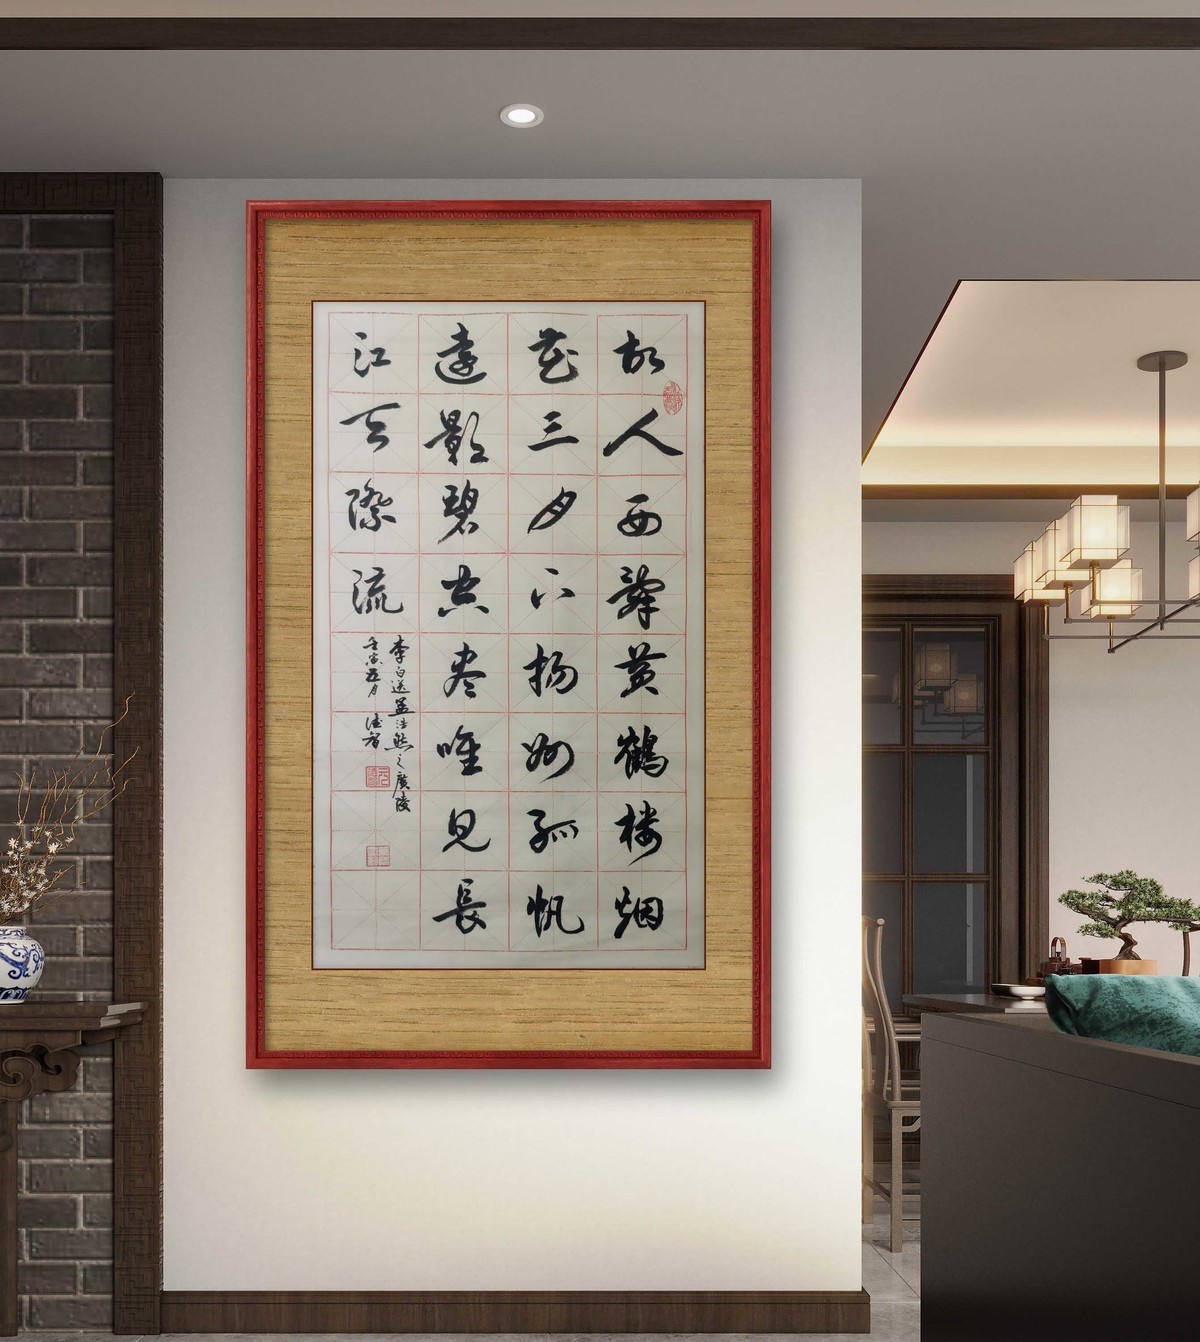 故人西辭黄鶴楼烟
花三月下揚州孤帆
遠影碧空尽唯見長
江天際流
李白送孟浩然之廣陵
壬寅五月